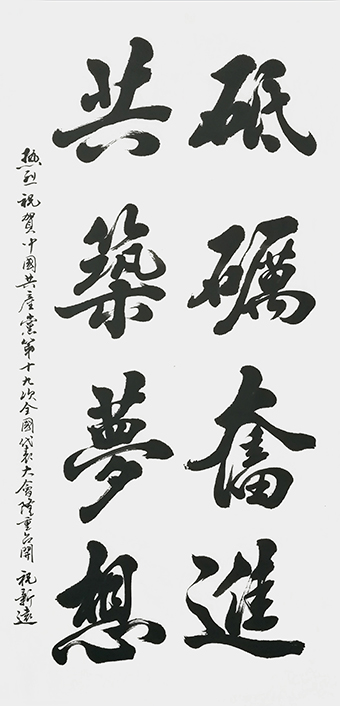 砥礪奮進
共築夢想
熱烈祝賀中國共產黨第十九次全國代表大會隆重召開 祝新遠